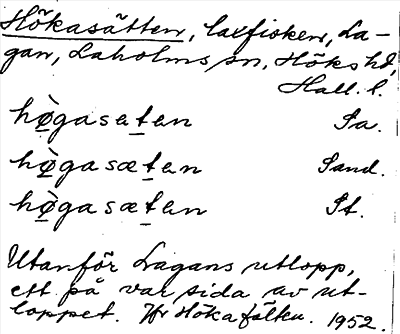 Hökasätten, laxfisken, La-
gan, Laholms sn, Höks hd,
Hall. l.
hø̀gaseten Sa.
hø̀gasæten Sand.
hø̀gasæten St.
Utanför Lagans utlopp,
ett på var sida av ut-
loppet. Jfr Hökafälku. 1952.